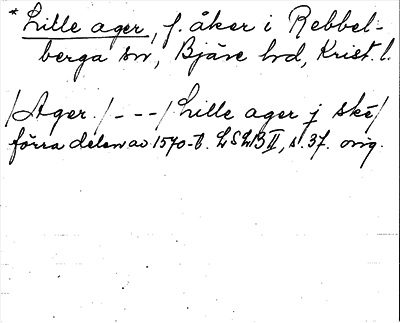 * Lille ager, f. åker i Rebbel-
berga sn, Bjäre hd, Krist. l.
/Ager./ - - - /Lille ager j ske/
förra delen av 1570-t. LSLB II, s. 37. orig.